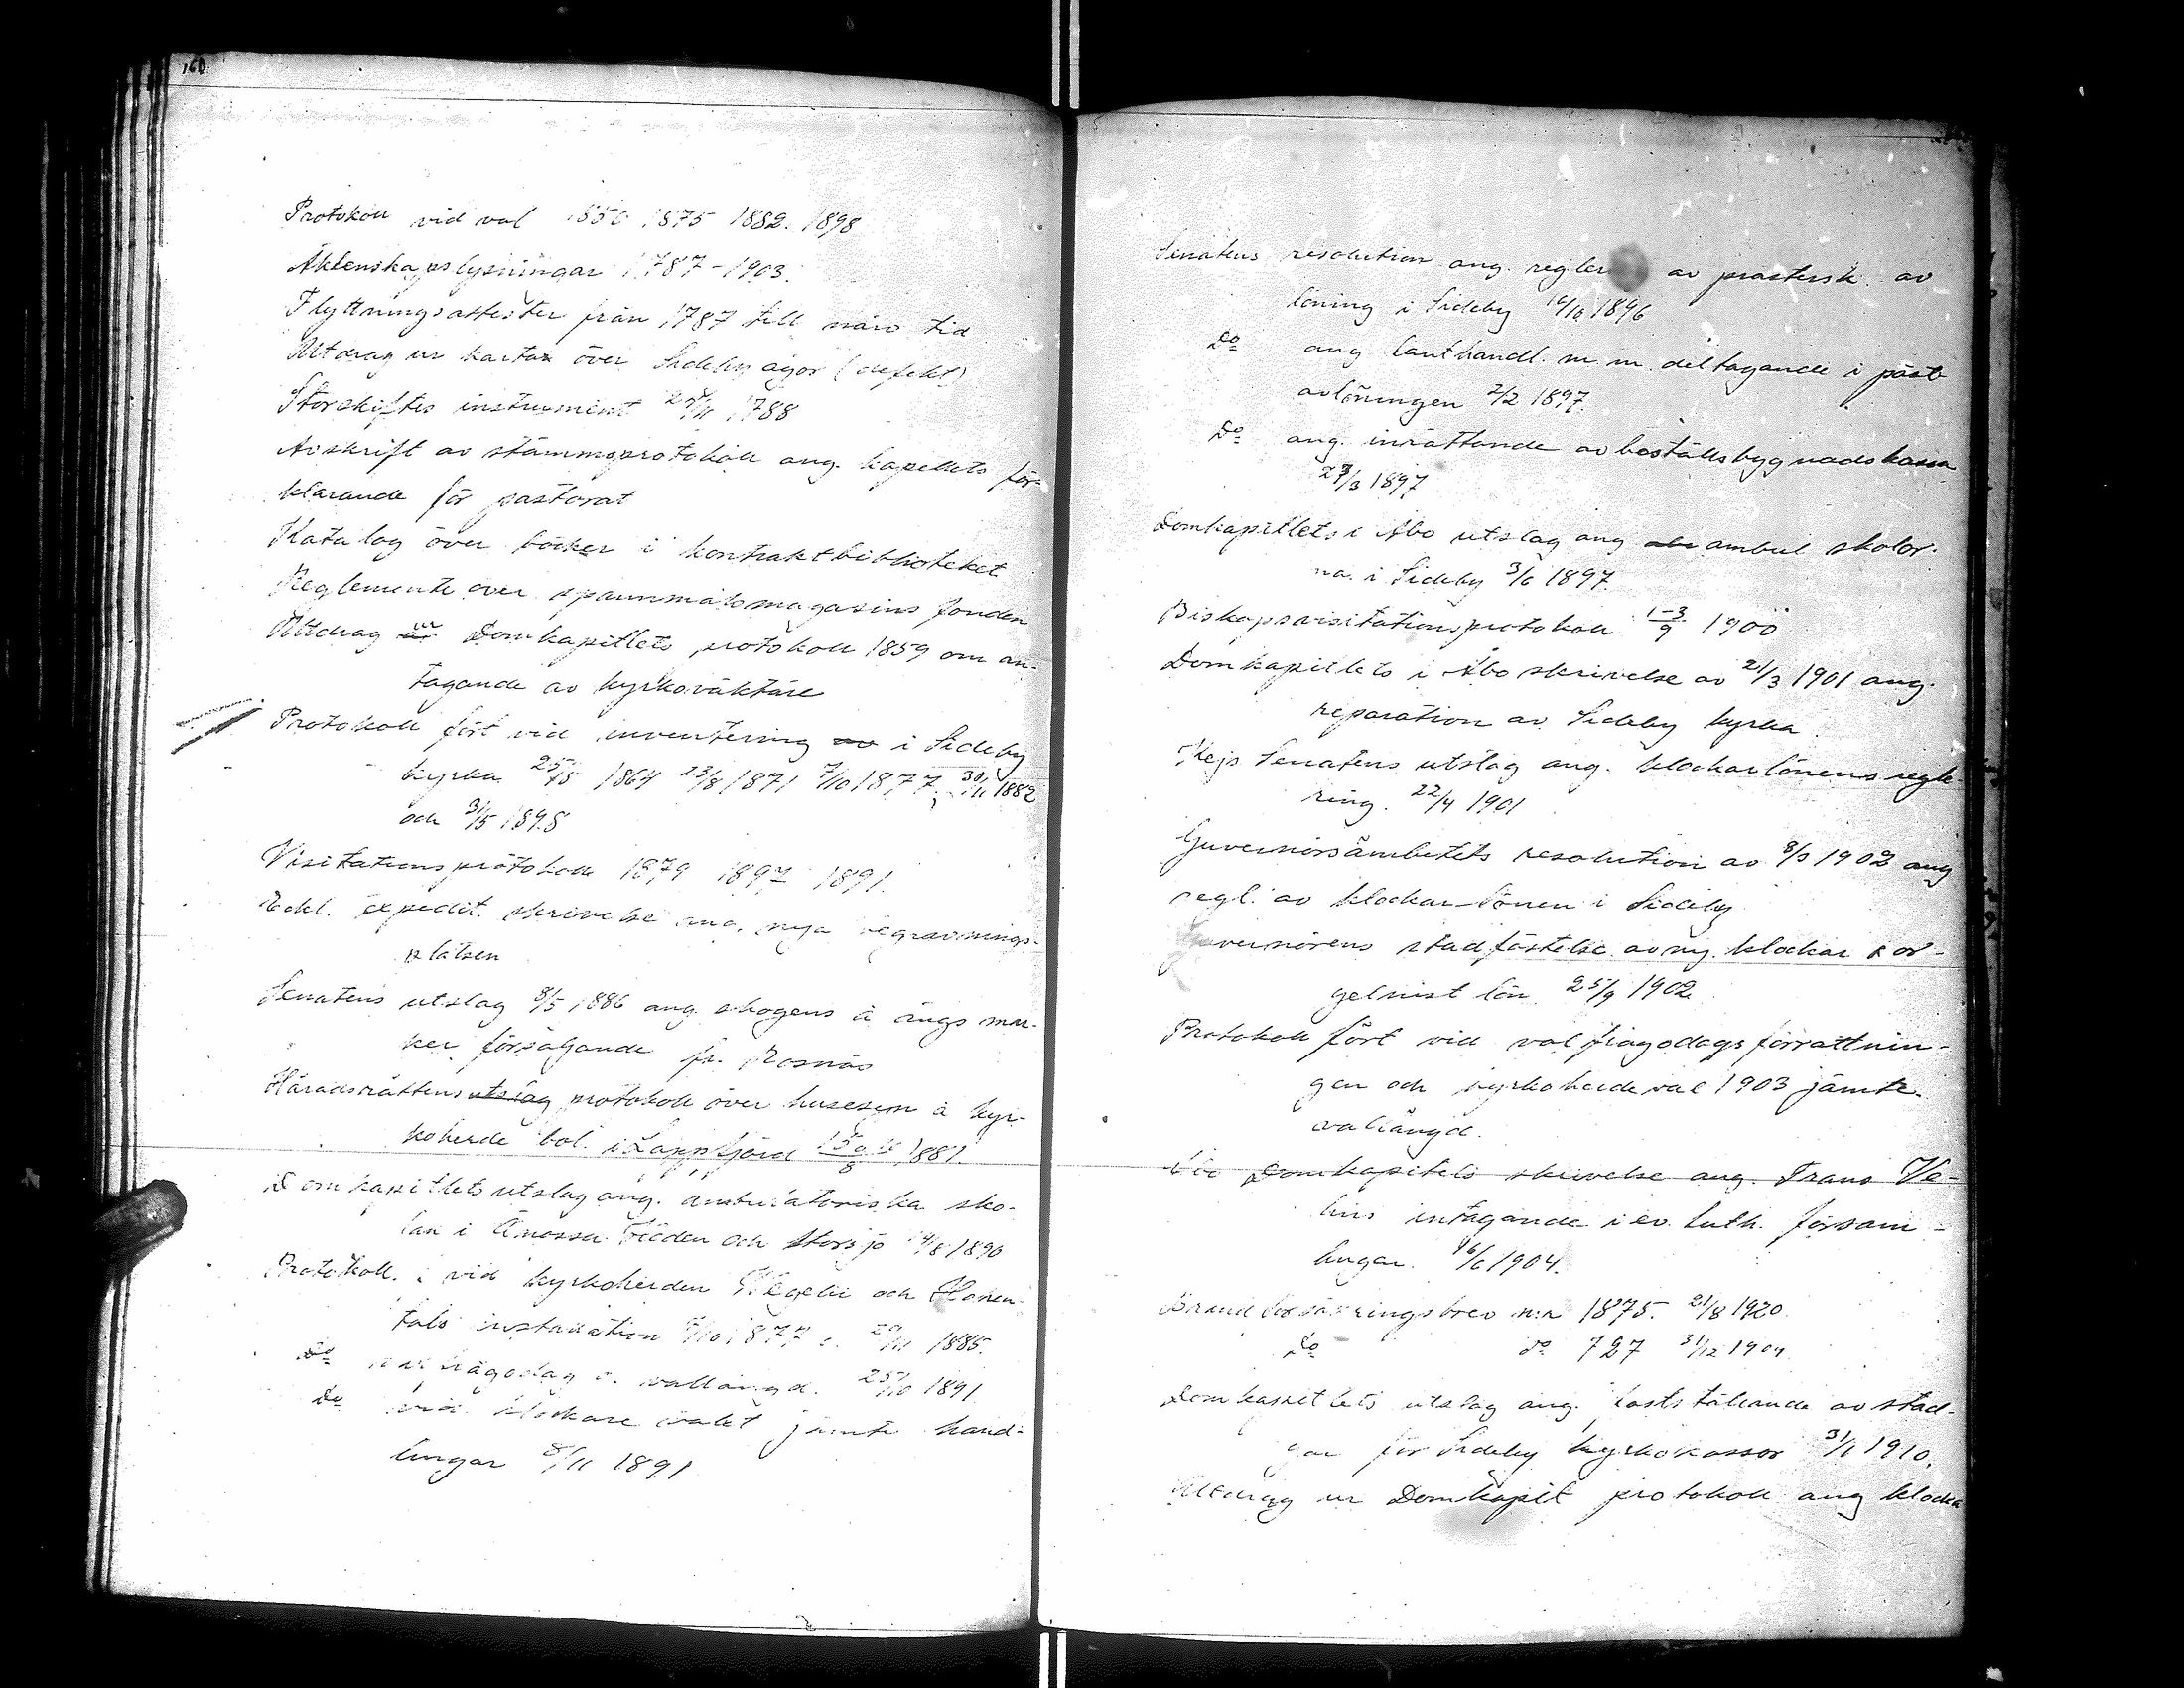 160
Protokoll vid val 1850 1875 1882. 1898
Äktenskapslysningar 1787-1903.
Flyttningsattester från 1787 till närv. tid
Utdrag ur kartor över Sideby ägor (defekt)
Storskiftes instrument 25/11 1788
Avskrift av stämmoprotokoll ang. kapellets för-
klarande för pastorat
Katalog över böcker i kontraktbiblioteket
Reglemente över spannmålsmagasins fonden
Utdrag ur Domkapitlets protokoll 1859 om an-
tagande av kyrkoväktare
Protokoll fört vid inventering av i Sideby
kyrka 25/5 1864 23/8 1871 7/10 1877, 30/11 1882
och 31/5 1898
Visitationsprotokoll 1879 1897 1891.
Eckl. expedit. skrivelse ang. nya begravnings-
platsen
Senatens utslag 8/5 1886 ang. skogens å ängs mar-
ker försäljande fr.
Häradsrättens utslag protokoll över husesyn å kyr-
koherde bol. i Lappfjärd 1881.
Domkapitlets utslag ang. ambulatoriska sko-
lan i Ömossa Flöden och Storsjö 14/8 1890
Protokoll vid kyrkoherden och
tals installation 7/10 1877 29/11 1885.
Do frågodag o. vallängd. 25/10 1891
Do vid klockare valet jämte hand-
lingar 8/11 1891
Senatens resolution ang. regler av prästersk. av
löning i Sideby 1896
Do ang lanthandl. m. m. deltagande i präst
avlöningen 2/2 1897.
Do ang. inrättande av boställsbygnadskassa
27/3 1897
Domkapitlets i Åbo utslag ang ambul skolor-
na i Sideby 3/6 1897.
Biskopsvisitationsprotokoll 1-3/9 1900
Domkapitlets i Åbo skrivelse av 21/3 1901 ang.
reparation av Sideby kyrka.
Kejs Senatens utslag ang. klockarlönens regle-
ring. 22/4 1901
Guvernörsämbetets resolution av 8/3 1902 ang
regl. av klockar-lönen i Sideby
Guvernörens stadfästelse av ny. klockar & or-
gelnist lön 25/9 1902
Protokoll fört vid valfrågodags förrättnin-
gen och kyrkoherdeval 1903 jämte
vallängd.
Åbo Domkapitels skrivelse ang. Frans
intagande i ev. luth. försam-
lingar. 16/6 1904.
Brandförsäkringsbrev n:r 1875. 21/8 1920.
Do do 727 31/12 1904
Domkapitlets utslag ang. fastställande av stad-
gar för Sideby kyrkokassor 31/1 1910.
Utdrag ur Domkapit protokoll ang klocka